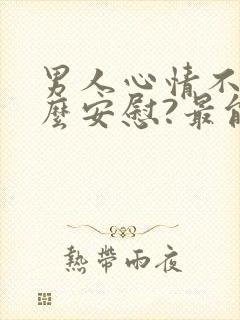 男人心情不
麼安慰?最能
熱帶雨夜